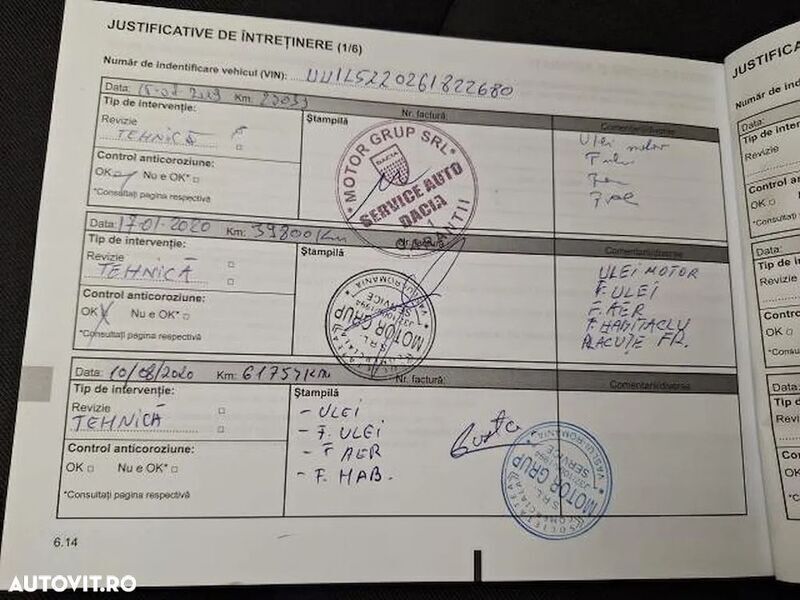 JUSTIFICATIVE DE ÎNTREȚINERE (1/6)
Număr de indentificare vehicul (VIN): UU1L5220261822680
Data: Km:
Nr. factură:
Comentarii/diverse
Tip de intervenție:
Revizie
TEHNICĂ
Control anticoroziune:
OK Nu e OK*
*Consultați pagina respectivă
Ștampilă
MOTOR GRUP SRL
DACIA
SERVICE AUTO
DACIA
1
GARANTII
Ulei motor
Data: 17-01-2020 Km: 39800 Km
Nr. factură:
Comentarii/diverse
Tip de intervenție:
Revizie
TEHNICĂ
Control anticoroziune:
OK Nu e OK*
*Consultați pagina respectivă
Ștampilă
SOCIETATEA
VASLUI-ROMANIA
MOTOR GRUP
S.R.L.
SERVICE
ULEI MOTOR
F. ULEI
F. AER
F. HABITACLU
PLACUȚE FR.
Data: 10/08/2020 Km: 61754 Km
Nr. factură:
Comentarii/diverse
Tip de intervenție:
Revizie
TEHNICĂ
Control anticoroziune:
OK Nu e OK*
*Consultați pagina respectivă
Ștampilă
- ULEI
- F. ULEI
- F AER
- F. HAB.
SOCIETATEA
COMERCIALA
VASLUI-ROMANIA
MOTOR GRUP
S.R.L.
SERVICE
6.14
JUSTIFICA
Număr de inde
Data:
Tip de int
Revizie
Control
OK
*Consu
Data:
Tip de
Reviz
Cont
OK
*Con
Data
Tip
Re
Co
O
AUTOVIT.RO